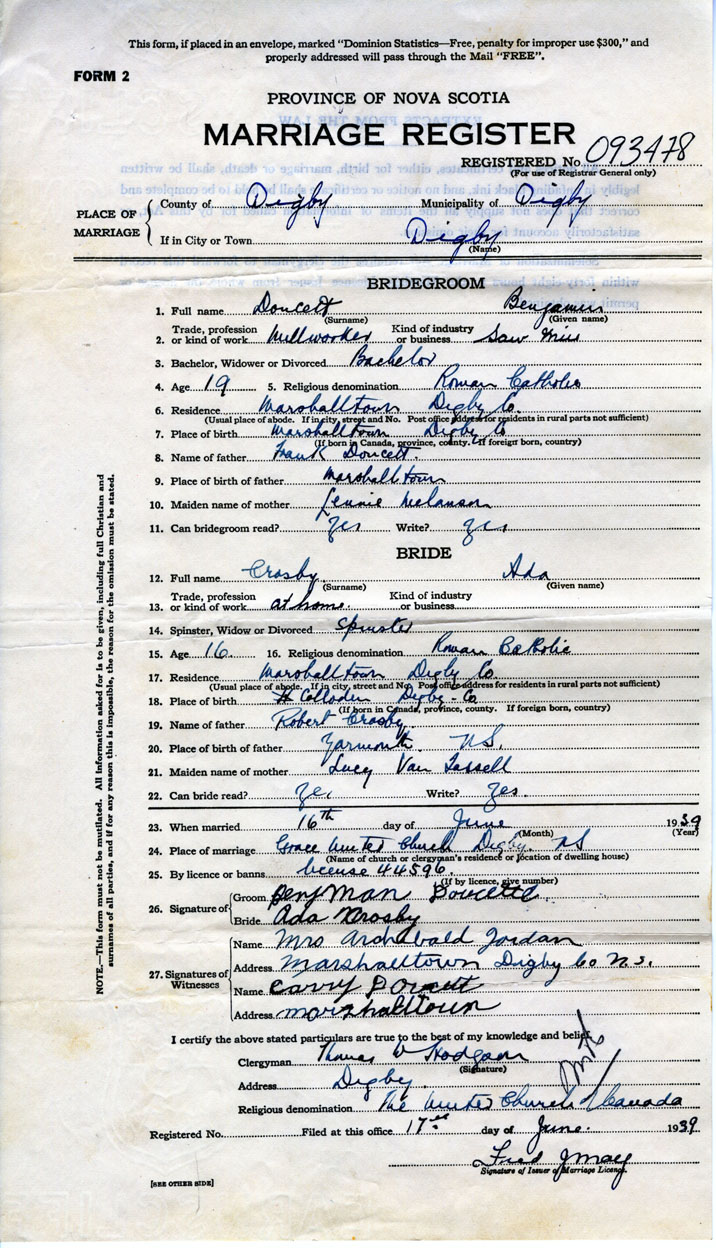 This form, if placed in an envelope, marked "Dominion Statistics—Free, penalty for improper use $300," and
properly addressed will pass through the Mail "FREE".
FORM 2
PROVINCE OF NOVA SCOTIA
MARRIAGE REGISTER
REGISTERED No. 093478
(For use of Registrar General only)
PLACE OF MARRIAGE
County of Digby Municipality of Digby
If in City or Town Digby
(Name)
BRIDEGROOM
1. Full name Doucett Benjamin
(Surname) (Given name)
2. Trade, profession or kind of work Millworker Kind of industry or business Saw Mill
3. Bachelor, Widower or Divorced Bachelor
4. Age 19 5. Religious denomination Roman Catholic
6. Residence Marshalltown Digby Co.
(Usual place of abode. If in city, street and No. Post office address for residents in rural parts not sufficient)
7. Place of birth Marshalltown Digby Co
(If born in Canada, province, county. If foreign born, country)
8. Name of father Frank Doucett.
9. Place of birth of father Marshalltown
10. Maiden name of mother Lennie Melanson
11. Can bridegroom read? yes Write? yes
BRIDE
12. Full name Crosby Ada
(Surname) (Given name)
13. Trade, profession or kind of work at home. Kind of industry or business
14. Spinster, Widow or Divorced Spinster
15. Age 16. 16. Religious denomination Roman Catholic
17. Residence Marshalltown Digby Co
(Usual place of abode. If in city, street and No. Post office address for residents in rural parts not sufficient)
18. Place of birth Culloden Digby Co
(If born in Canada, province, county. If foreign born, country)
19. Name of father Robert Crosby.
20. Place of birth of father Yarmouth N.S.
21. Maiden name of mother Lucy Van Tassell
22. Can bride read? yes Write? yes.
23. When married 16th day of June 1939
(Month) (Year)
24. Place of marriage Grace United Church Digby. NS
(Name of church or clergyman's residence or location of dwelling house)
25. By licence or banns license 44596
(If by licence, give number)
26. Signature of
Groom Benj Man Doucette
Bride Ada Crosby
27. Signatures of Witnesses
Name Mrs Archabald Jordan
Address Marshalltown Digby Co N.S.
Name Carry Doucett
Address marshalltown
I certify the above stated particulars are true to the best of my knowledge and belief.
Clergyman Thomas W Hodgson
(Signature)
Address Digby.
Religious denomination The United Church of Canada
Registered No. Filed at this office 17 day of June. 1939
Fred J May
Signature of Issuer of Marriage Licence.
[SEE OTHER SIDE]
NOTE.—This form must not be mutilated. All information asked for is to be given, including full Christian and
surnames of all parties, and if for any reason this is impossible, the reason for the omission must be stated.